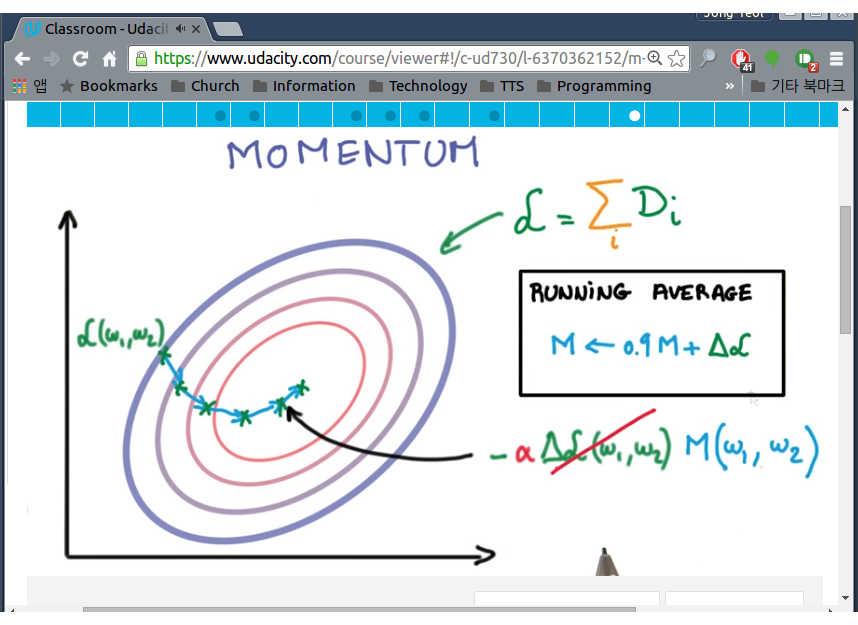 Jong Yeol
Classroom - Udacit
https://www.udacity.com/course/viewer#!/c-ud730/l-6370362152/m-
41
2
앱 Bookmarks Church Information Technology TTS Programming » 기타 북마크
MOMENTUM
ℒ = Σ Di
i
RUNNING AVERAGE
M ← 0.9 M + Δℒ
ℒ(ω1, ω2)
- α Δℒ(ω1, ω2) M(ω1, ω2)